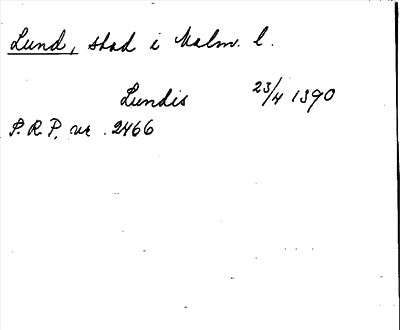 Lund, stad i Malm. l.
Lundis 23/4 1390
S.R.P. nr. 2466